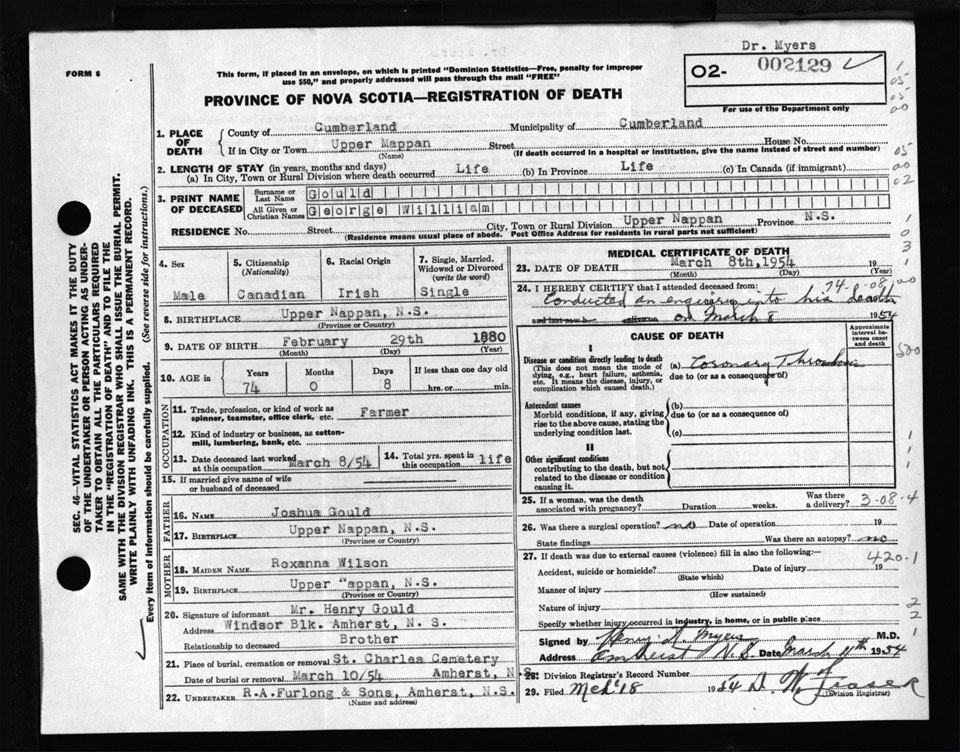 Dr. Myers
FORM 6
This form, if placed in an envelope, on which is printed "Dominion Statistics—Free, penalty for improper
use $50," and properly addressed will pass through the mail "FREE"
O2- 002129
For use of the Department only
PROVINCE OF NOVA SCOTIA—REGISTRATION OF DEATH
1. PLACE OF DEATH County of Cumberland Municipality of Cumberland
If in City or Town Upper Mappan Street House No.
(Name) (If death occurred in a hospital or institution, give the name instead of street and number)
2. LENGTH OF STAY (in years, months and days)
(a) In City, Town or Rural Division where death occurred Life (b) In Province Life (c) In Canada (if immigrant)
3. PRINT NAME OF DECEASED Surname or Last Name Gould
All Given or Christian Names George William
RESIDENCE No. Street City, Town or Rural Division Upper Nappan Province N.S.
(Residence means usual place of abode. Post Office Address for residents in rural parts not sufficient)
4. Sex Male
5. Citizenship (Nationality) Canadian
6. Racial Origin Irish
7. Single, Married, Widowed or Divorced (write the word) Single
8. BIRTHPLACE Upper Nappan, N.S.
(Province or Country)
9. DATE OF BIRTH February 29th 1880
(Month) (Day) (Year)
10. AGE in Years 74 Months 0 Days 8 If less than one day old hrs. or min.
OCCUPATION
11. Trade, profession, or kind of work as spinner, teamster, office clerk, etc. Farmer
12. Kind of industry or business, as cotton-mill, lumbering, bank, etc.
13. Date deceased last worked at this occupation March 8/54 14. Total yrs. spent in this occupation life
15. If married give name of wife or husband of deceased
FATHER
16. NAME Joshua Gould
17. BIRTHPLACE Upper Nappan, N.S.
(Province or Country)
MOTHER
18. MAIDEN NAME Roxanna Wilson
19. BIRTHPLACE Upper Nappan, N.S.
(Province or Country)
20. Signature of informant Mr. Henry Gould
Address Windsor Blk. Amherst, N. S.
Relationship to deceased Brother
21. Place of burial, cremation or removal St. Charles Cemetery
Date of burial or removal March 10/54 Amherst, N.S
22. UNDERTAKER R.A.Furlong & Sons, Amherst, N.S.
(Name and address)
MEDICAL CERTIFICATE OF DEATH
23. DATE OF DEATH March 8th, 1954 19
(Month) (Day) (Year)
24. I HEREBY CERTIFY that I attended deceased from: 74-8-08
Conducted an enquiry into his death
on March 8 1954
CAUSE OF DEATH
Approximate interval between onset and death
I
Disease or condition directly leading to death
(This does not mean the mode of dying, e.g., heart failure, asthenia, etc. It means the disease, injury, or complication which caused death.)
(a) Coronary Thrombosis
due to (or as a consequence of)
Antecedent causes
Morbid conditions, if any, giving rise to the above cause, stating the underlying condition last.
(b)
due to (or as a consequence of)
(c)
II
Other significant conditions
contributing to the death, but not related to the disease or condition causing it.
25. If a woman, was the death associated with pregnancy? Duration weeks. Was there a delivery? 3-08-4
26. Was there a surgical operation? no Date of operation 19
State findings Was there an autopsy? no
27. If death was due to external causes (violence) fill in also the following: 420-1
Accident, suicide or homicide? Date of injury 19
(State which)
Manner of injury
(How sustained)
Nature of injury
Specify whether injury occurred in industry, in home, or in public place
Signed by Henry D. Myers M.D.
Address Amherst N.S. Date March 11th 1954
28. Division Registrar's Record Number
29. Filed Mch 18 1954 D. W. Fraser
(Division Registrar)
SEC. 46—VITAL STATISTICS ACT MAKES IT THE DUTY
OF THE UNDERTAKER OR PERSON ACTING AS UNDER-
TAKER TO OBTAIN ALL THE PARTICULARS REQUIRED
IN THE "REGISTRATION OF DEATH" AND TO FILE THE
SAME WITH THE DIVISION REGISTRAR WHO SHALL ISSUE THE BURIAL PERMIT.
WRITE PLAINLY WITH UNFADING INK. THIS IS A PERMANENT RECORD.
Every item of information should be carefully supplied. (See reverse side for instructions.)